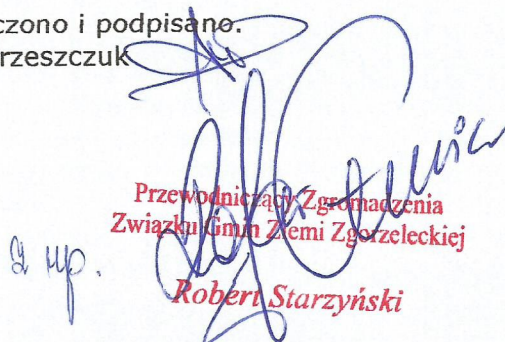 czono i podpisano.
rzeszczuk
Przewodniczący Zgromadzenia
Związku Gmin Ziemi Zgorzeleckiej
z up.
Robert Starzyński